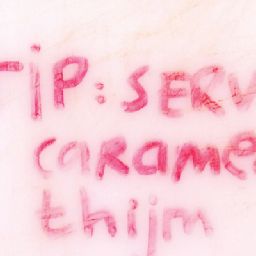 TIP: SERV
carame
thijm